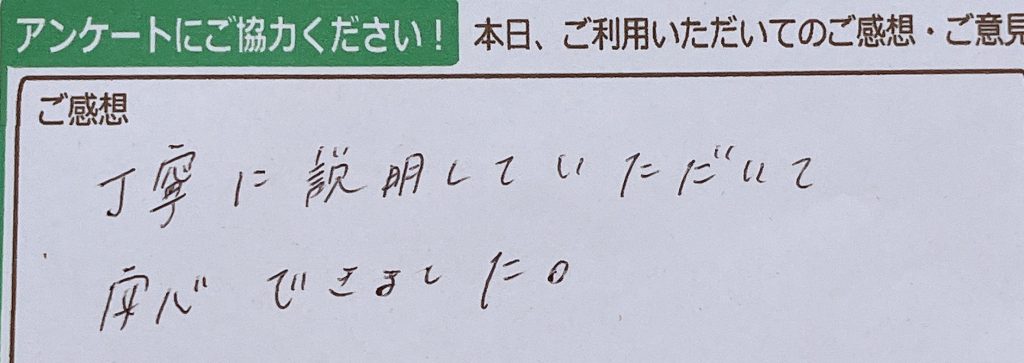 アンケートにご協力ください！ 本日、ご利用いただいてのご感想・ご意見
ご感想
丁寧に説明していただいて
安心できました。